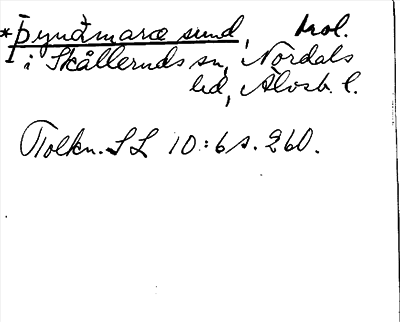 *Þynamaræ sund, Mol.
i Skålleruds sn, Nordals
hd, Älvsb. l.
Tolkn. SL 10:6 s. 260.